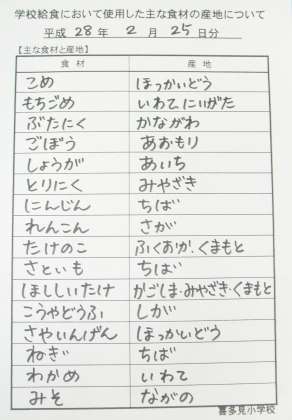 学校給食において使用した主な食材の産地について
平成 28 年 2 月 25 日分
【主な食材と産地】
食材 産地
こめ ほっかいどう
もちごめ いわて,にいがた
ぶたにく かながわ
ごぼう あおもり
しょうが あいち
とりにく みやざき
にんじん ちば
れんこん さが
たけのこ ふくおか、くまもと
さといも ちば
ほししいたけ かごしま・みやざき・くまもと
こうやどうふ しが
さやいんげん ほっかいどう
ねぎ ちば
わかめ いわて
みそ ながの
喜多見小学校